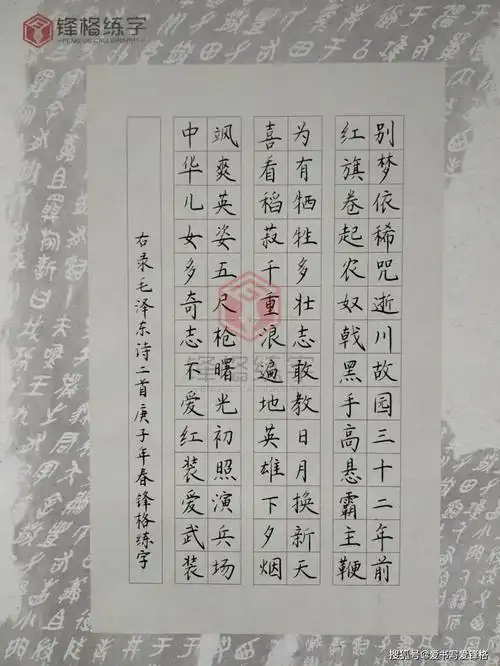 锋格练字
FENGGE CALLIGRAPHY
别梦依稀咒逝川故园三十二年前
红旗卷起农奴戟黑手高悬霸主鞭
为有牺牲多壮志敢教日月换新天
喜看稻菽千重浪遍地英雄下夕烟
飒爽英姿五尺枪曙光初照演兵场
中华儿女多奇志不爱红装爱武装
右录毛泽东诗二首庚子年春锋格练字
锋格练字
搜狐号@爱书写爱锋格